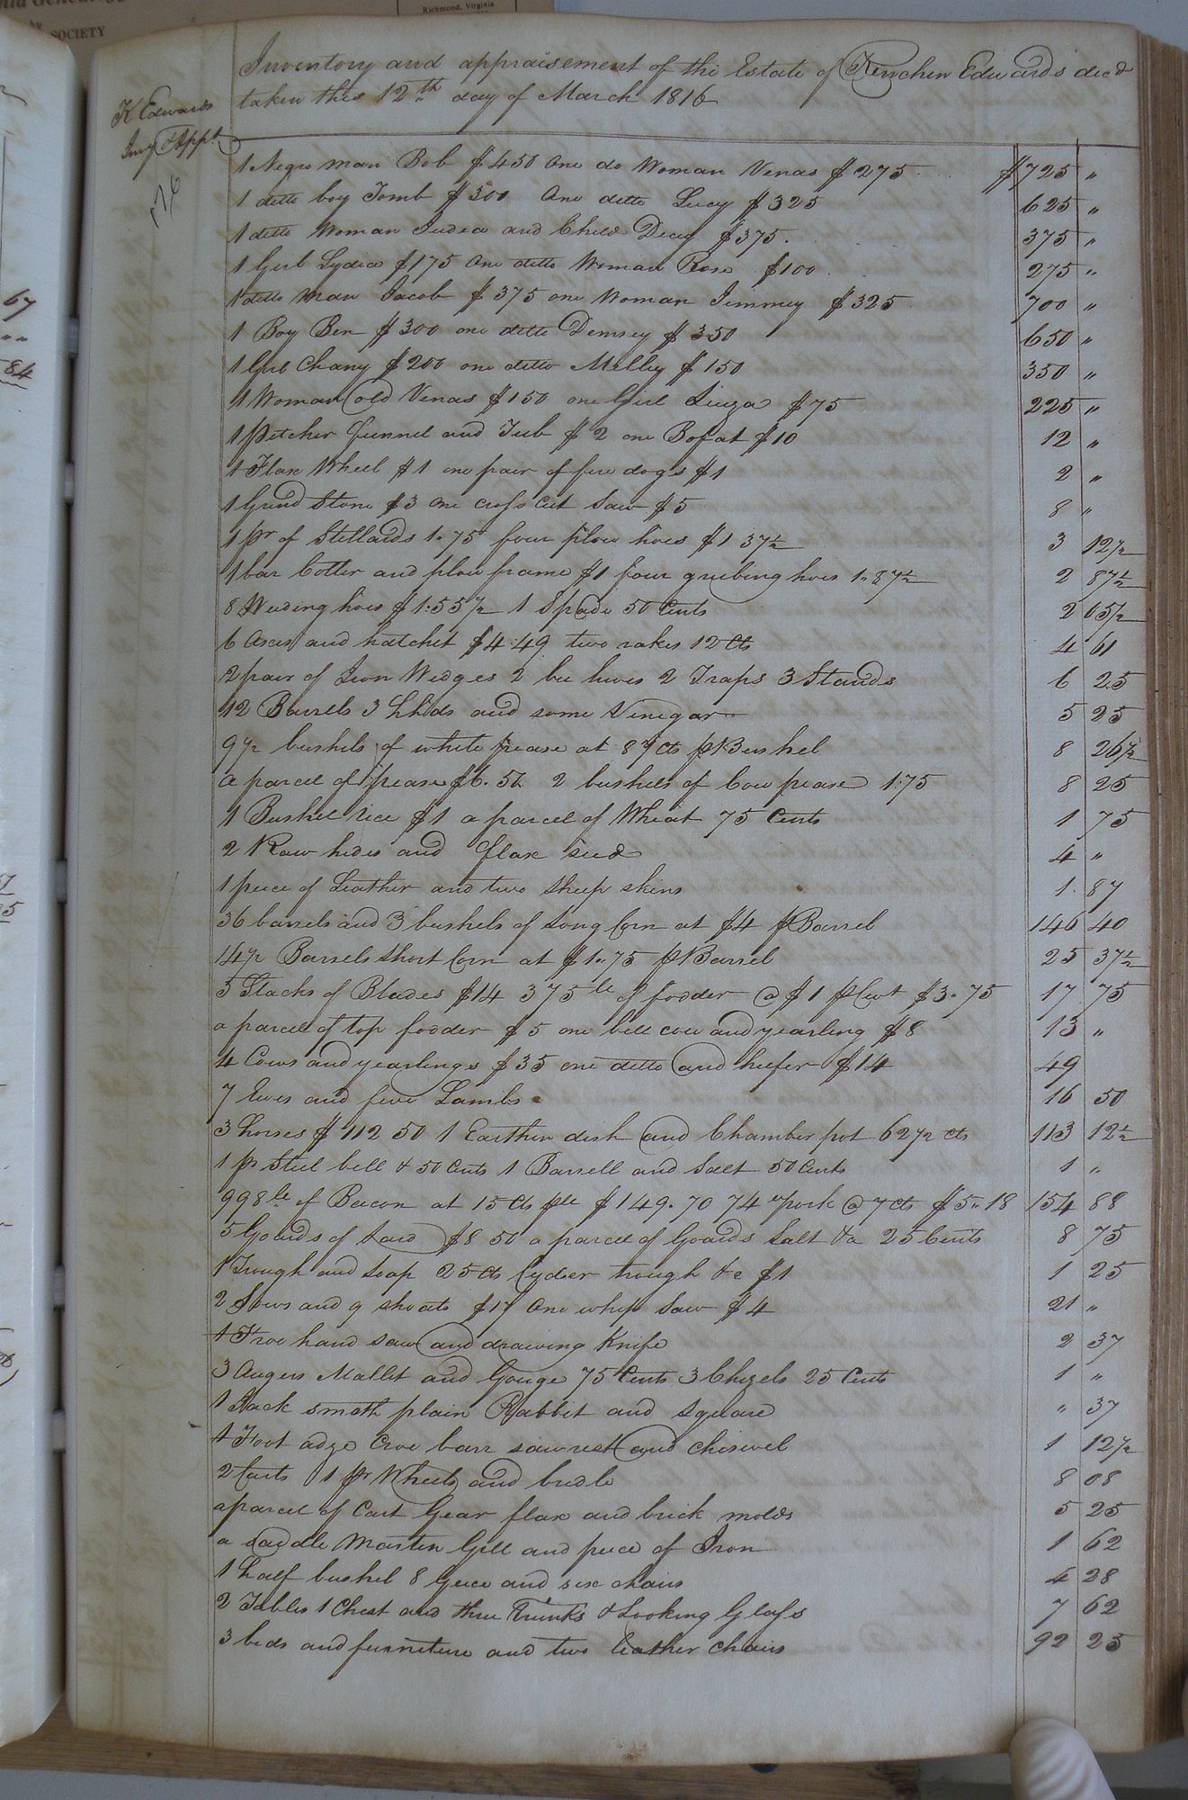 Richmond, Virginia
SOCIETY
Inventory and appraisement of the Estate of Kinchen Edwards decd
taken this 12th day of March 1816
K Edwards
Invy & Appt
1 Negro man Bob $450 One do Woman Venas $275 $725 "
1 ditto boy Tomb $300 One ditto Lucy $325 625 "
1 ditto Woman Judea and Child Dicey $375. 375 "
1 Girl Lydia $175 One ditto Woman Rose $100 275 "
1 ditto man Jacob $375 one Woman Jemmey $325 700 "
1 Boy Ben $300 one ditto Demsey $350 650 "
1 Girl Chany $200 one ditto Milley $150 350 "
1 Woman old Venas $150 one Girl Liuza $75 225 "
1 Pitcher funnel and Tub $2 one Bofat $10 12 "
1 Flax Wheel $1 one pair of fire dogs $1 2 "
1 Grind Stone $3 One cross cut Saw $5 8 "
1 pr of Stillards 1.75 four plow hoes $1 37½ 3 12½
1 bar Cotter and plow frame $1 four grubing hoes 1.87½ 2 87½
8 Weeding hoes $1.55½ 1 Spade 50 Cents 2 05½
6 Axes and hatchet $4.49 two rakes 12 Cts 4 61
2 pair of Iron Wedges 2 bee hives 2 Traps 3 Stands 6 25
12 Barrels 3 hhds and some Vinegar 5 25
9½ bushels of white pease at 87 cts p Bushel 8 26½
a parcel of pease $6.50 2 bushels of Cow pease 1.75 8 25
1 Bushel rice $1 a parcel of Wheat 75 Cents 1 75
2 Raw hides and flax seed 4 "
1 piece of Leather and two sheep skins 1.87
36 barrels and 3 bushels of long Corn at $4 p Barrel 146 40
14½ Barrels short Corn at $1.75 p Barrel 25 37½
5 Stacks of Blades $14 375 lb of fodder @ $1 p Cwt $3.75 17 75
a parcel of top fodder $5 one bell cow and yearling $8 13 "
4 Cows and yearlings $35 one ditto and heifer $14 49
7 Ewes and five Lambs 16 50
3 horses $112 50 1 Earthen dish and Chamber pot 62½ cts 113 12½
1 pr Steel bell & 50 Cents 1 Barrell and Salt 50 Cents 1 "
998 lb of Bacon at 15 Cts p lb $149.70 74 lb pork @ 7 cts $5.18 154 88
5 Goards of Lard $8 50 a parcel of Goards Salt &a 25 Cents 8 75
1 Trough and Soap 25 cts Cyder trough &c $1 1 25
2 Sows and 9 shoats $17 One whip Saw $4 21 "
1 Froe hand saw and drawing Knife 2 37
3 Augers Mallet and Gouge 75 Cents 3 Chizels 25 Cents 1 "
1 Jack smoth plain Rabbit and square " 37
1 Foot adze Croe barr saw rest and chiswel 1 12½
2 Carts 1 pr Wheels and bridle 8 08
a parcel of Cart Gear flax and brick molds 5 25
a saddle Marten Gill and piece of Iron 1 62
1 half bushel 8 Geece and six chairs 4 28
2 Tables 1 Chest and three Trunks & Looking Glass 7 62
3 beds and furniture and two leather chairs 92 25